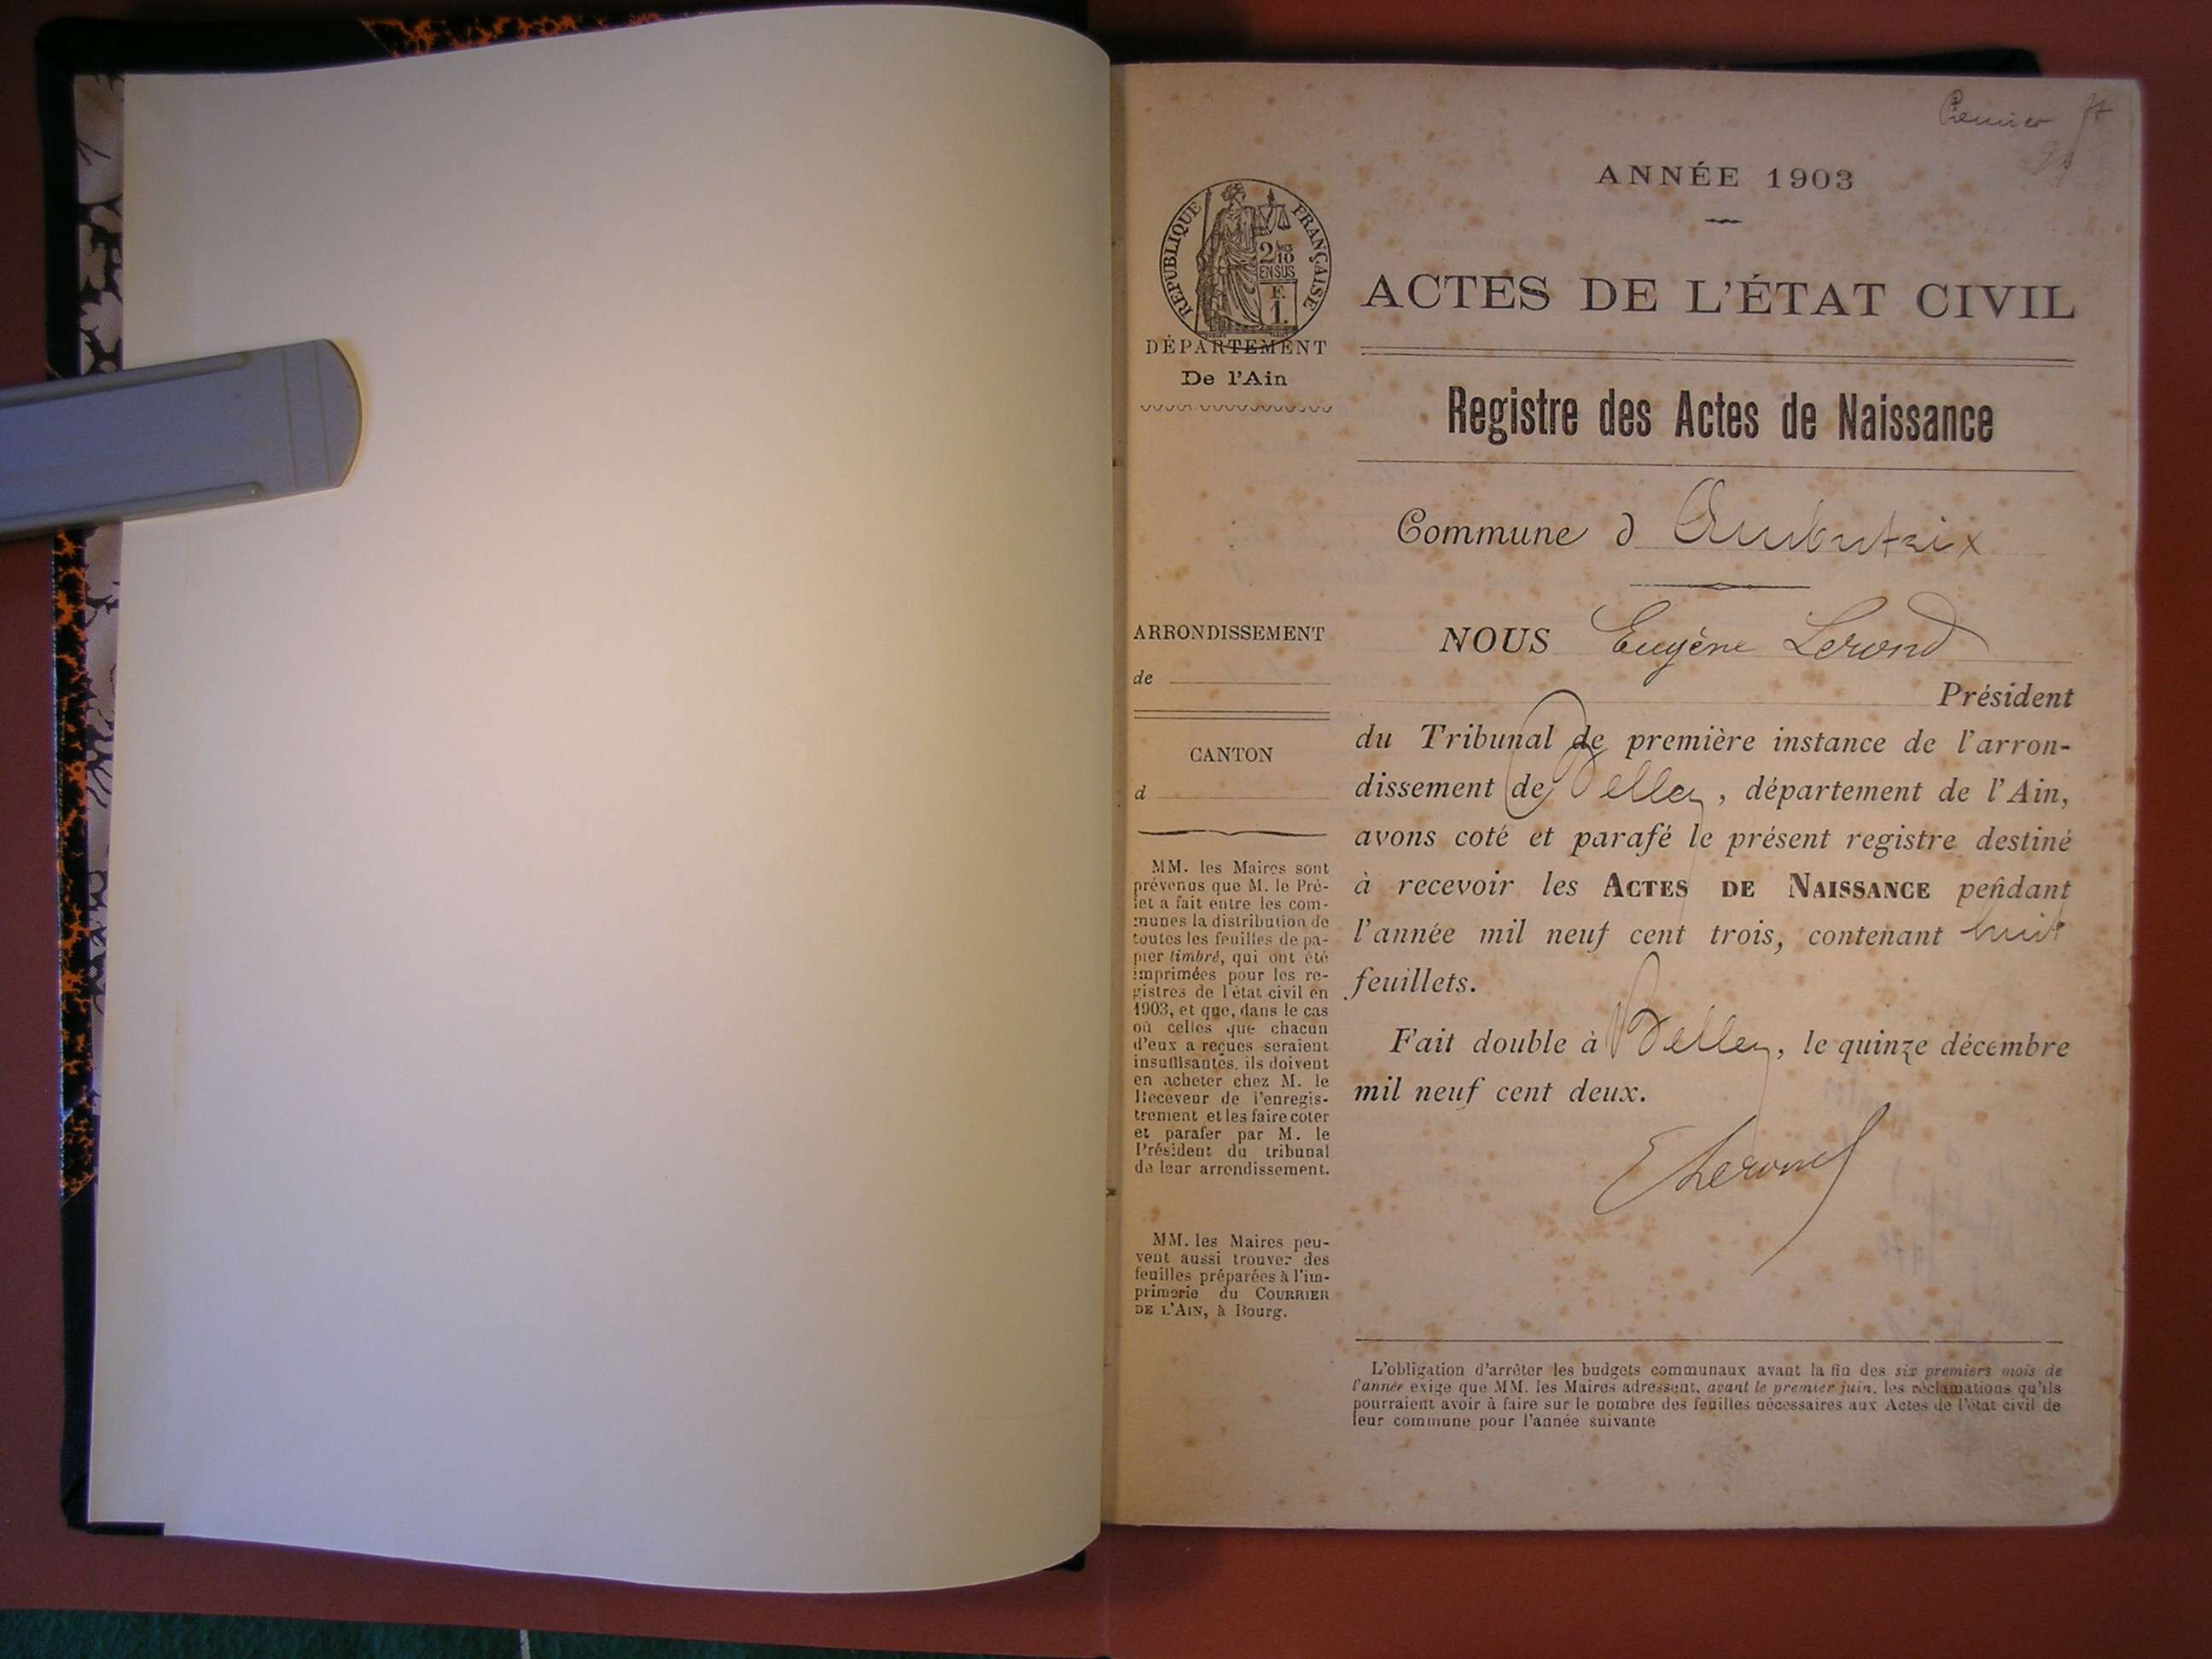 Premier
ANNÉE 1903
RÉPUBLIQUE FRANÇAISE
2/10
EN SUS
F.
1.
ACTES DE L'ÉTAT CIVIL
DÉPARTEMENT
De l'Ain
Registre des Actes de Naissance
Commune d Ambutrix
NOUS Eugène Lerond
Président
du Tribunal de première instance de l'arron-
dissement de Belley, département de l'Ain,
avons coté et parafé le présent registre destiné
à recevoir les ACTES DE NAISSANCE pendant
l'année mil neuf cent trois, contenant huit
feuillets.
Fait double à Belley, le quinze décembre
mil neuf cent deux.
E Lerond
ARRONDISSEMENT
de
CANTON
d
MM. les Maires sont
prévenus que M. le Pré-
fet a fait entre les com-
munes la distribution de
toutes les feuilles de pa-
pier timbré, qui ont été
imprimées pour les re-
gistres de l'état civil en
1903, et que, dans le cas
où celles que chacun
d'eux a reçues seraient
insuffisantes, ils doivent
en acheter chez M. le
Receveur de l'enregis-
trement et les faire coter
et parafer par M. le
Président du tribunal
de leur arrondissement.
MM. les Maires peu-
vent aussi trouver des
feuilles préparées à l'im-
primerie du COURRIER
DE L'AIN, à Bourg.
L'obligation d'arrêter les budgets communaux avant la fin des six premiers mois de
l'année exige que MM. les Maires adressent, avant le premier juin, les réclamations qu'ils
pourraient avoir à faire sur le nombre des feuilles nécessaires aux Actes de l'état civil de
leur commune pour l'année suivante